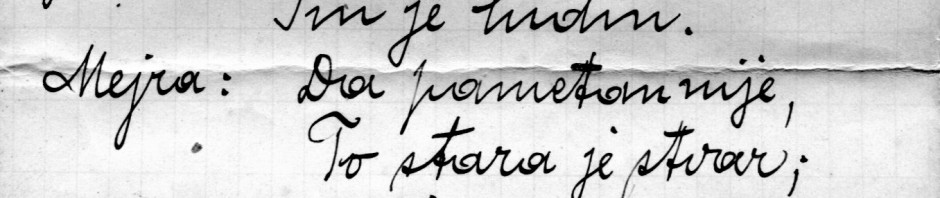 je
Mejra: Da pametan nije,
To stara je stvar;